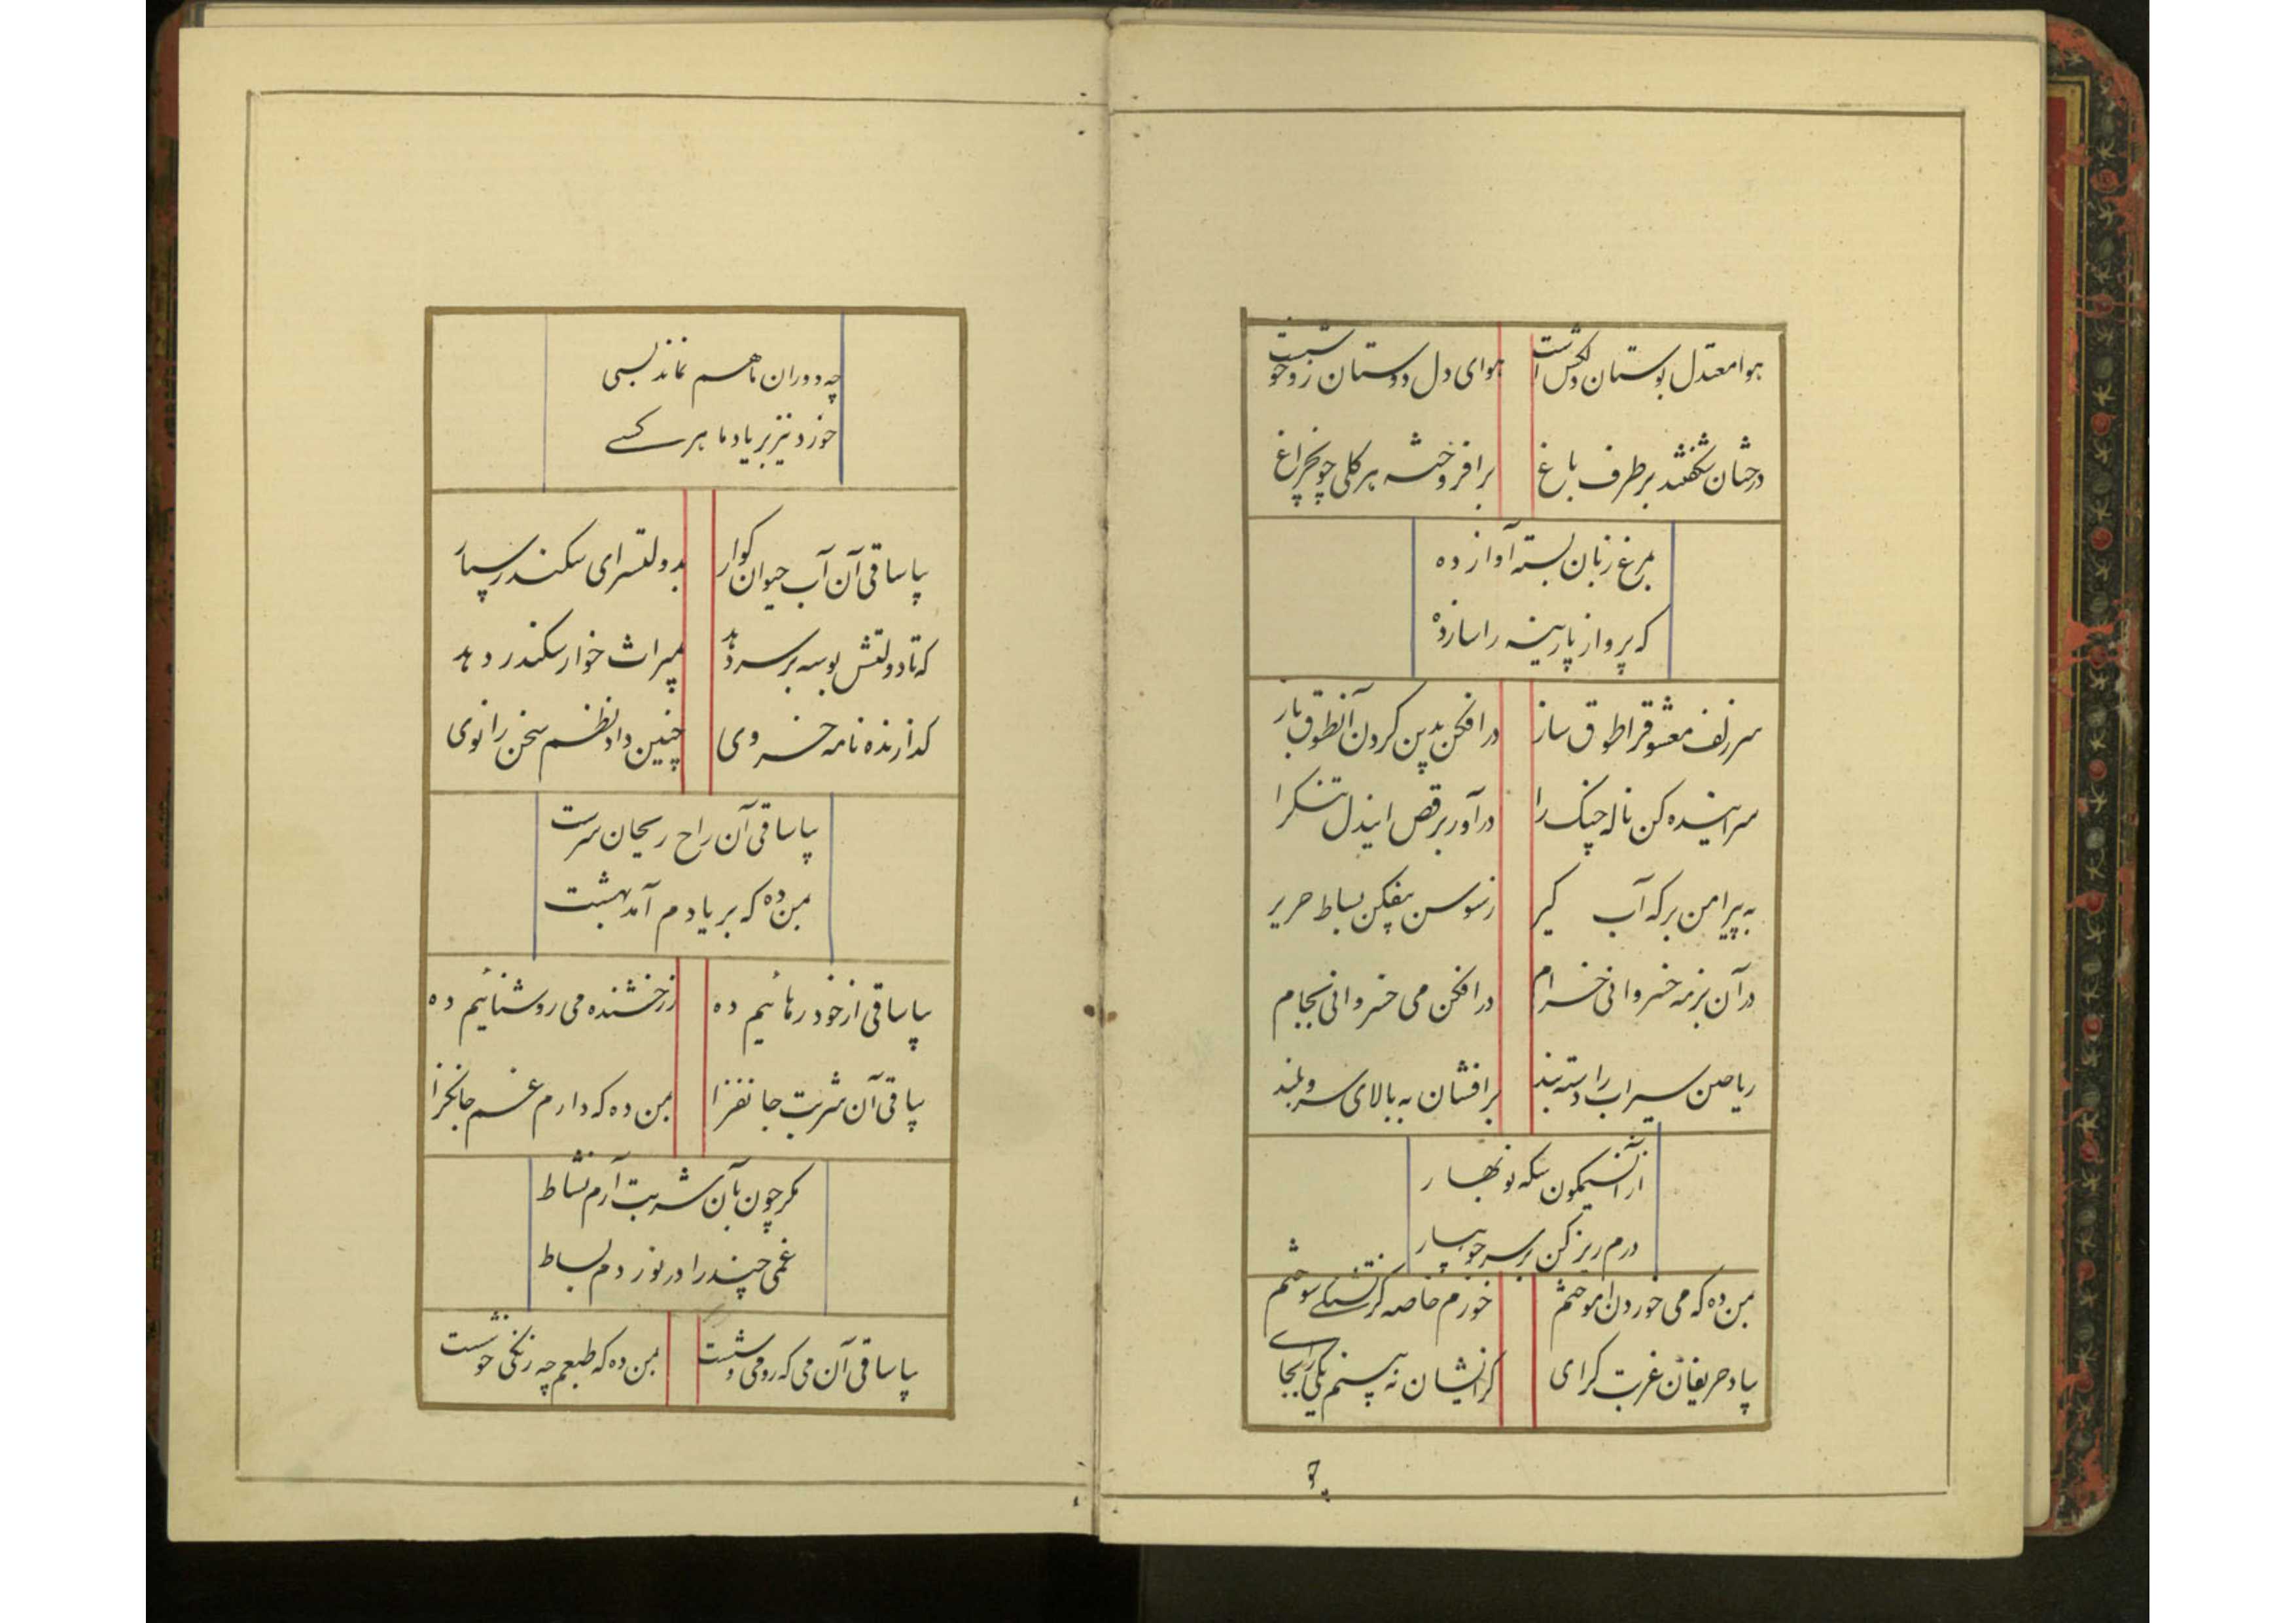 هوا معتدل بوستان دلکش است هوای دل دوستان زو خوشست
درختان شکفتند بر طرف باغ برافروخته هر گلی چونچراغ
بمرغ زبان بسته آواز ده
که پرواز پارینه را ساز ده
سر زلف معشوقرا طوق ساز در افکن بدین کردن آنطوق باز
سراینده کن ناله چنک را درآور برقص ایندل تنکرا
به پیرامن برکه آب گیر ز سوسن بیفکن بساط حریر
در آن بزمه خسروانی خرام در افکن می خسروانی بجام
ریاحین سیراب را دسته بند برافشان به بالای سرو بلند
از آن سیمکون سکه نوبهار
درم ریز کن بر سر جویبار
بمن ده که می خوردن آموختم خورم خاصه کز تشنکی سوختم
بیاد حریفان غربت کرای کز ایشان نه بینم یکی را بجای
چو
چه دوران ما هم نماند بسی
خورد نیز بر یاد ما هر کسے
بیا ساقی آن آب حیوان کوار بدولتسرای سکندر سپار
که تا دولتش بوسه بر سر دهد بمیراث خوار سکندر دهد
کذارنده نامه خسروی چنین داد نظم سخن را نوی
بیا ساقی آن راح ریحان سرشت
بمن ده که بر یادم آمد بهشت
بیا ساقی از خود رهائیم ده ز رخشنده می روشنائیم ده
بیا قی آن شربت جانفزا بمن ده که دارم غم جانکزا
مکر چون بآن شربت آرم نشاط
غمی چند را در نوردم بساط
بیا ساقی آن می که رومی وشست بمن ده که طبعم چه زنکی خوشست